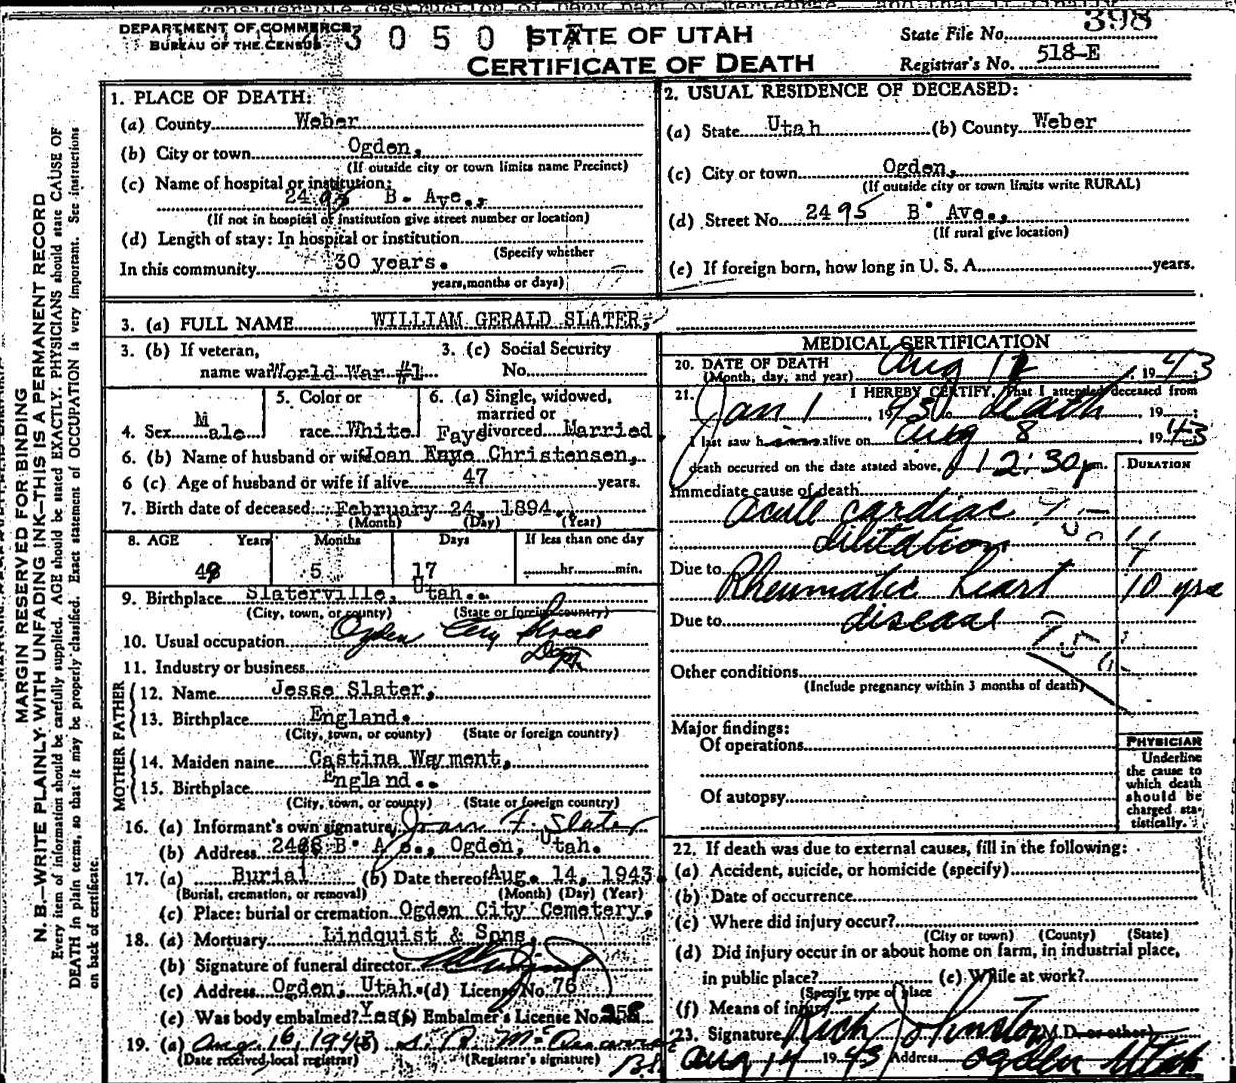 DEPARTMENT OF COMMERCE
BUREAU OF THE CENSUS
3 0 5 0
STATE OF UTAH
CERTIFICATE OF DEATH
State File No. 398
Registrar's No. 518-E
MARGIN RESERVED FOR BINDING
N. B.—WRITE PLAINLY WITH UNFADING INK—THIS IS A PERMANENT RECORD
Every item of information should be carefully supplied. AGE should be stated EXACTLY. PHYSICIANS should state CAUSE OF
DEATH in plain terms, so that it may be properly classified. Exact statement of OCCUPATION is very important. See instructions
on back of certificate.
1. PLACE OF DEATH:
(a) County Weber
(b) City or town Ogden,
(If outside city or town limits name Precinct)
(c) Name of hospital or institution:
2495 B. Ave.,
(If not in hospital or institution give street number or location)
(d) Length of stay: In hospital or institution
(Specify whether
In this community 30 years.
years, months or days)
2. USUAL RESIDENCE OF DECEASED:
(a) State Utah (b) County Weber
(c) City or town Ogden,
(If outside city or town limits write RURAL)
(d) Street No. 2495 B. Ave.,
(If rural give location)
(e) If foreign born, how long in U. S. A. years.
3. (a) FULL NAME WILLIAM GERALD SLATER,
3. (b) If veteran,
name war World War #1
3. (c) Social Security
No.
4. Sex Male
5. Color or
race White
6. (a) Single, widowed,
married or
divorced Married
Faye
6. (b) Name of husband or wife Joan Faye Christensen,
6 (c) Age of husband or wife if alive 47 years.
7. Birth date of deceased February 24, 1894.
(Month) (Day) (Year)
8. AGE Years Months Days If less than one day
49 5 17 hr. min.
9. Birthplace Slaterville, Utah.
(City, town, or county) (State or foreign country)
10. Usual occupation Ogden City Street
Dept.
11. Industry or business
FATHER
12. Name Jesse Slater,
13. Birthplace England.
(City, town, or county) (State or foreign country)
MOTHER
14. Maiden name Castina Wayment,
15. Birthplace England.
(City, town, or county) (State or foreign country)
16. (a) Informant's own signature Joan F. Slater
(b) Address B. Ave., Ogden, Utah.
17. (a) Burial (b) Date thereof Aug. 14, 1943.
(Burial, cremation, or removal) (Month) (Day) (Year)
(c) Place: burial or cremation Ogden City Cemetery.
18. (a) Mortuary Lindquist & Sons,
(b) Signature of funeral director
(c) Address Ogden, Utah. (d) License No. 76
(e) Was body embalmed? Yes (f) Embalmer's License No.
19. (a) Aug. 16, 1943
(Date received, local registrar) (Registrar's signature)
MEDICAL CERTIFICATION
20. DATE OF DEATH
(Month, day, and year) Aug , 1943
21. I HEREBY CERTIFY, That I attended deceased from
Jan 1 , 19 to death , 19
I last saw him alive on Aug 8 , 1943
death occurred on the date stated above, 12:30 p.m.
DURATION
Immediate cause of death
Acute cardiac
dilitation
Due to Rheumatic heart 10 yrs
Due to disease
Other conditions
(Include pregnancy within 3 months of death)
Major findings:
Of operations
Of autopsy
PHYSICIAN
Underline
the cause to
which death
should be
charged sta-
tistically.
22. If death was due to external causes, fill in the following:
(a) Accident, suicide, or homicide (specify)
(b) Date of occurrence
(c) Where did injury occur?
(City or town) (County) (State)
(d) Did injury occur in or about home on farm, in industrial place,
in public place? (e) While at work?
(Specify type of place
(f) Means of injury
23. Signature Rich Johnston (M.D. or other)
Aug 14 1943 Address Ogden Utah